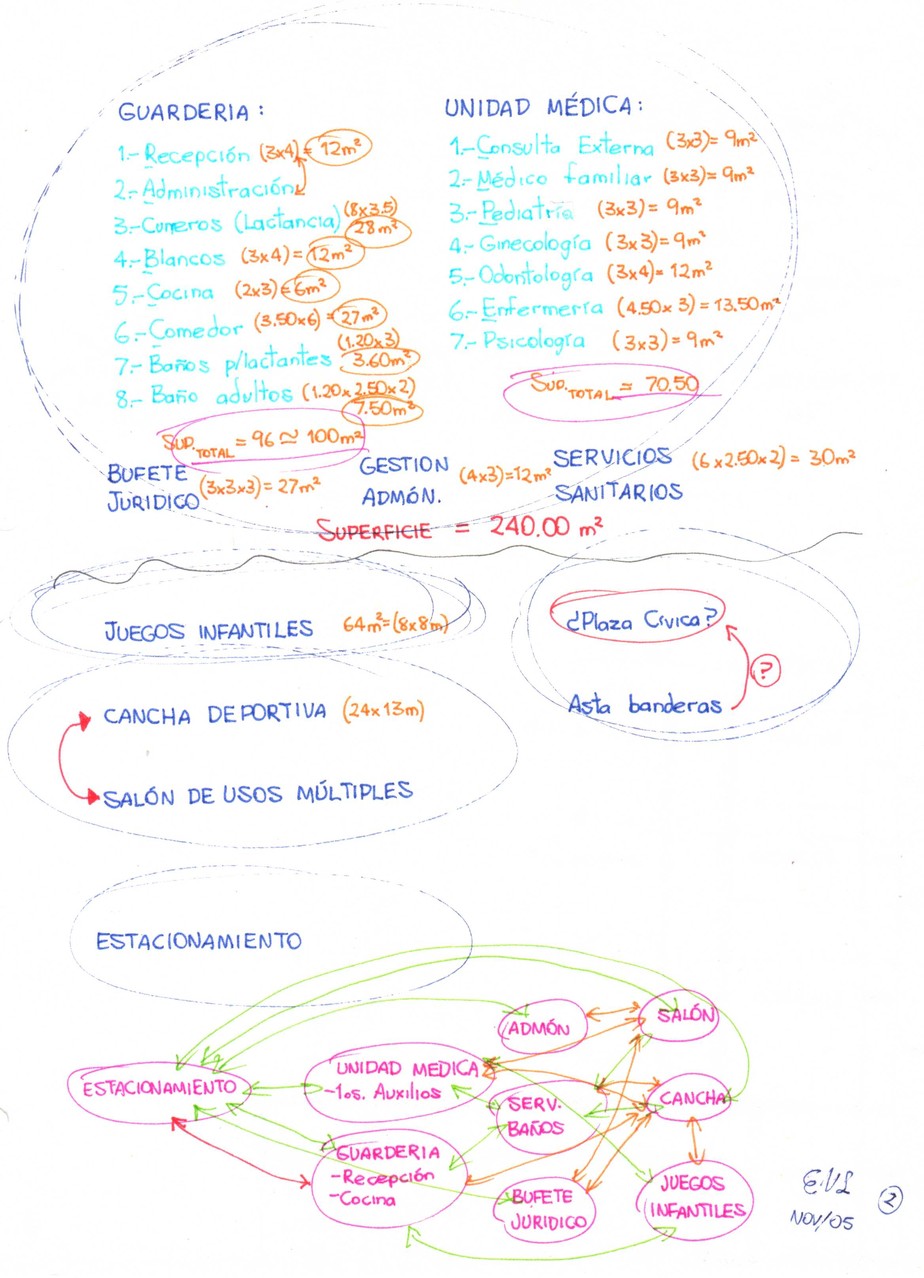 GUARDERIA:
1.- Recepción (3x4) = 12m²
2.- Administración
3.- Cuneros (Lactancia) (8x3.5) 28m²
4.- Blancos (3x4) = 12m²
5.- Cocina (2x3) = 6m²
6.- Comedor (3.50x6) = 27m²
7.- Baños p/lactantes (1.20x3) 3.60m²
8.- Baño adultos (1.20x2.50x2) 7.50m²
SUP. TOTAL = 96 ≃ 100m²
UNIDAD MÉDICA:
1.- Consulta Externa (3x3) = 9m²
2.- Médico familiar (3x3) = 9m²
3.- Pediatría (3x3) = 9m²
4.- Ginecología (3x3) = 9m²
5.- Odontología (3x4) = 12m²
6.- Enfermería (4.50x3) = 13.50m²
7.- Psicología (3x3) = 9m²
SUP. TOTAL = 70.50
BUFETE
JURIDICO (3x3x3) = 27m²
GESTION
ADMÓN. (4x3) = 12m²
SERVICIOS
SANITARIOS (6x2.50x2) = 30m²
SUPERFICIE = 240.00 m²
JUEGOS INFANTILES 64m² = (8x8m)
¿Plaza Cívica?
?
Asta banderas
CANCHA DEPORTIVA (24x13m)
SALÓN DE USOS MÚLTIPLES
ESTACIONAMIENTO
ADMÓN
SALÓN
ESTACIONAMIENTO
UNIDAD MEDICA
-1os. Auxilios
SERV.
BAÑOS
CANCHA
GUARDERIA
-Recepción
-Cocina
BUFETE
JURIDICO
JUEGOS
INFANTILES
NOV/05
2